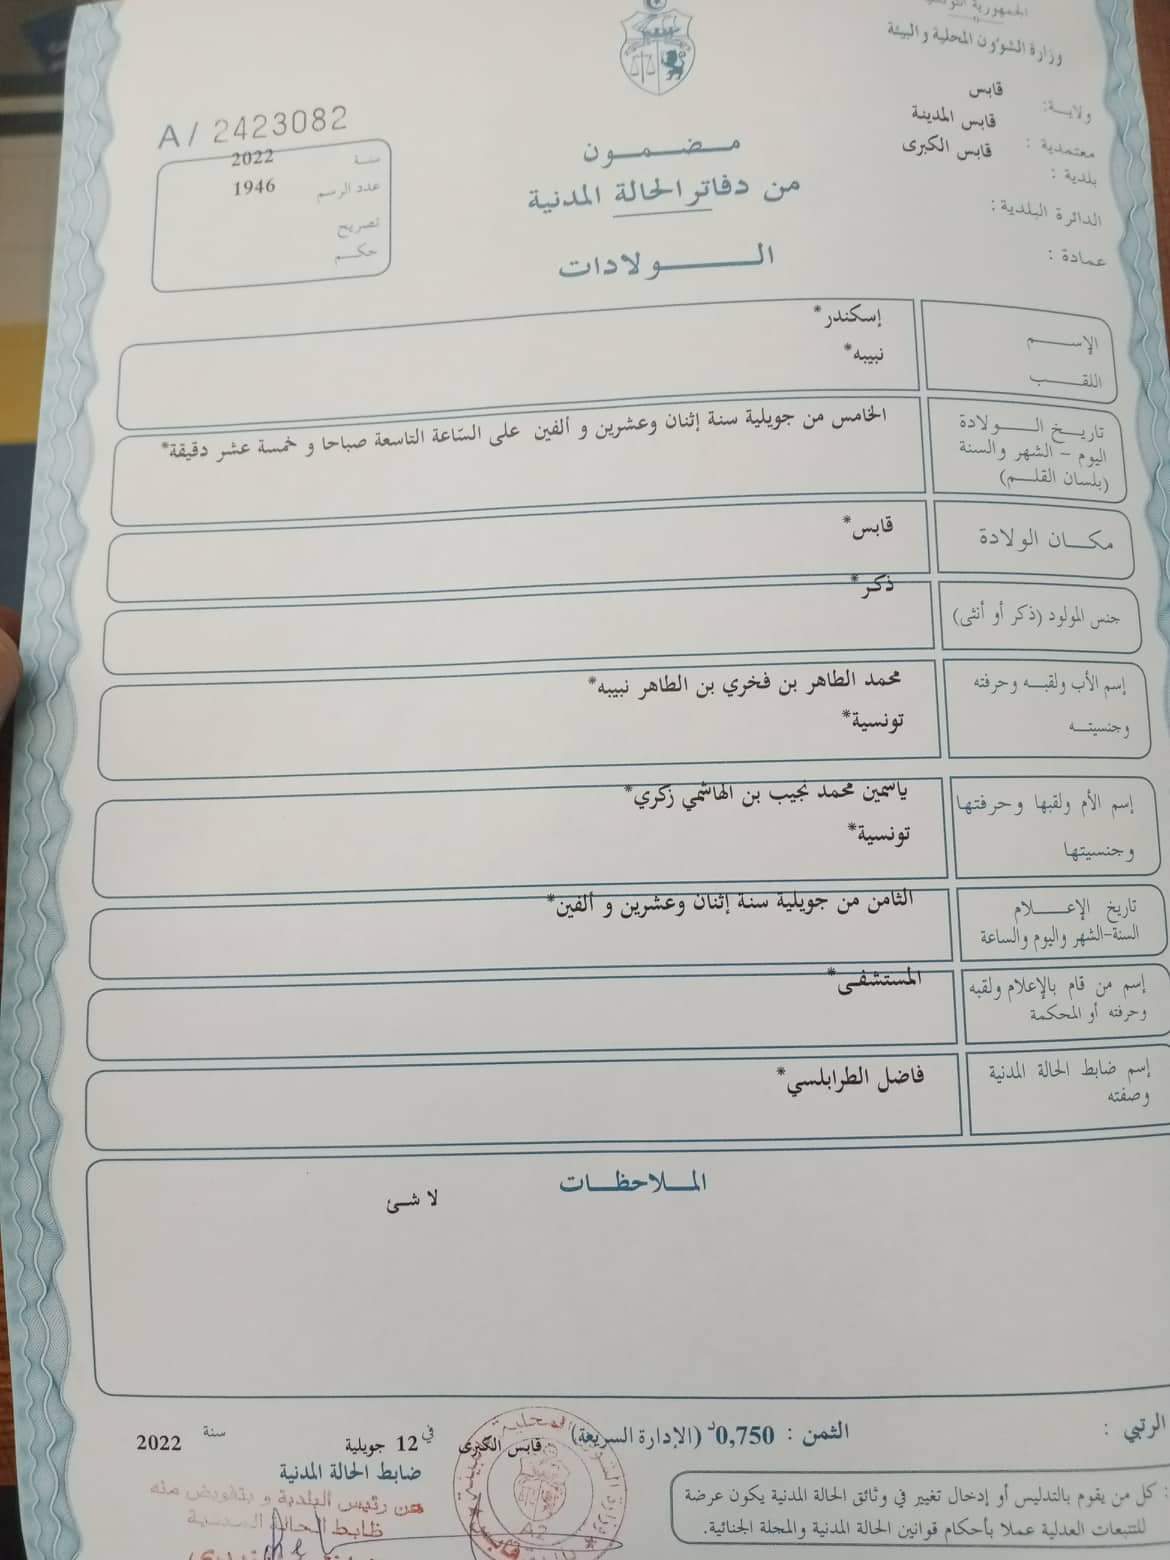 الجمهورية التونسية
وزارة الشؤون المحلية والبيئة
ولاية: قابس
معتمدية : قابس المدينة
بلدية : قابس الكبرى
الدائرة البلدية :
عمادة :
A / 2423082
سنة 2022
عدد الرسم 1946
تصريح
حكم
مضمون
من دفاتر الحالة المدنية
الولادات
الإسم إسكندر*
اللقب نبيبه*
تاريخ الولادة
اليوم - الشهر والسنة
(بلسان القلم)
الخامس من جويلية سنة إثنان وعشرين و ألفين على السّاعة التاسعة صباحا و خمسة عشر دقيقة*
مكان الولادة قابس*
جنس المولود (ذكر أو أنثى) ذكر*
إسم الأب ولقبه وحرفته
وجنسيته
محمد الطاهر بن فخري بن الطاهر نبيبه*
تونسية*
إسم الأم ولقبها وحرفتها
وجنسيتها
ياسمين محمد نجيب بن الهاشمي زكري*
تونسية*
تاريخ الإعلام
السنة-الشهر واليوم والساعة
الثامن من جويلية سنة إثنان وعشرين و ألفين*
إسم من قام بالإعلام ولقبه
وحرفته أو المحكمة
المستشفى*
إسم ضابط الحالة المدنية
وصفته
فاضل الطرابلسي*
الملاحظات
لا شئ
الرتبي :
الثمن : 0,750د (الإدارة السريعة)
قابس الكبرى في 12 جويلية سنة 2022
ضابط الحالة المدنية
عن رئيس البلدية و بتفويض منه
ضابط الحالة المدنية
: كل من يقوم بالتدليس أو إدخال تغيير في وثائق الحالة المدنية يكون عرضة
للتتبعات العدلية عملا بأحكام قوانين الحالة المدنية والمجلة الجنائية.